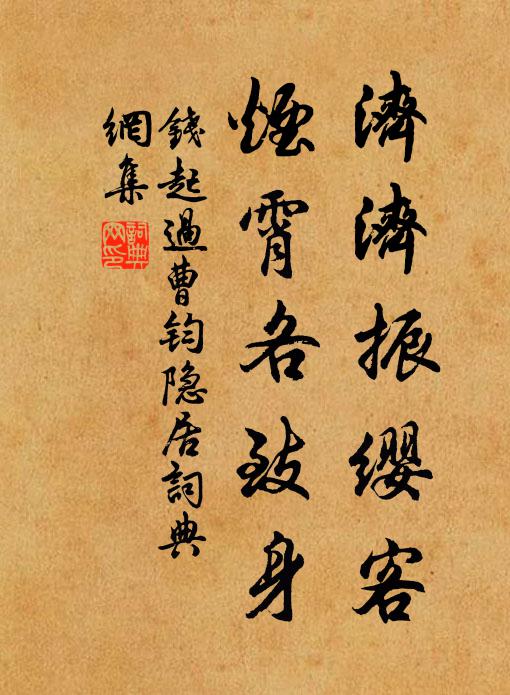 濟濟振纓客
煙霄各致身
錢起過曹鈞隐居詞典
網集
詞典網印